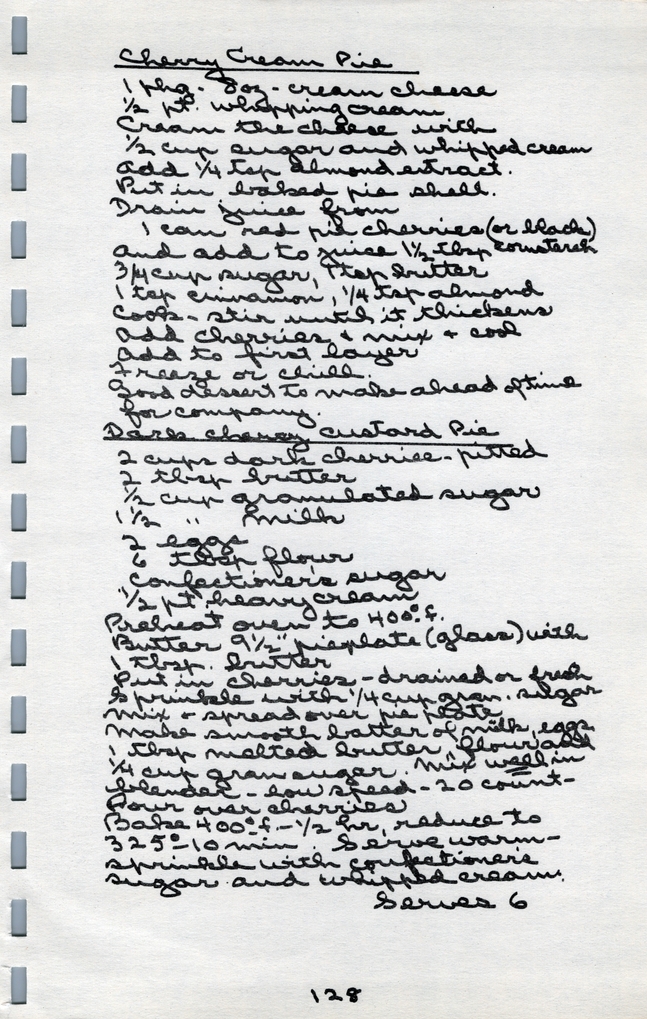 Cherry Cream Pie
1 pkg. 8oz - cream cheese
1/2 pt. whipping cream
Cream the cheese with
1/2 cup sugar and whipped cream
add 1/4 tsp almond extract.
Put in baked pie shell.
Drain juice from
1 can red pie cherries (or black)
and add to juice 1 1/2 tbsp cornstarch
3/4 cup sugar, 1 tsp butter
1 tsp cinnamon, 1/4 tsp almond
Cook - stir until it thickens
add cherries + mix + cool
add to first layer
Freeze or chill.
Good dessert to make ahead of time
for company.
Dark cherry custard Pie
2 cups dark cherries - pitted
2 tbsp butter
1/2 cup granulated sugar
1 1/2 " milk
2 eggs
6 tbsp flour
Confectioner's sugar
1/2 pt heavy cream
Preheat oven to 400° f.
Butter 9 1/2" pieplate (glass) with
1 tbsp. butter
Put in cherries - drained or fresh
Sprinkle with 1/4 cup gran. sugar
mix + spread over pie plate
Make smooth batter of milk, eggs
1 tbsp melted butter, flour and
1/4 cup gran sugar. Mix well in
blender - low speed - 20 count -
Pour over cherries
Bake 400° f. - 1/2 hr, reduce to
325° - 10 min. Serve warm -
sprinkle with confectioners
sugar and whipped cream.
Serves 6
128